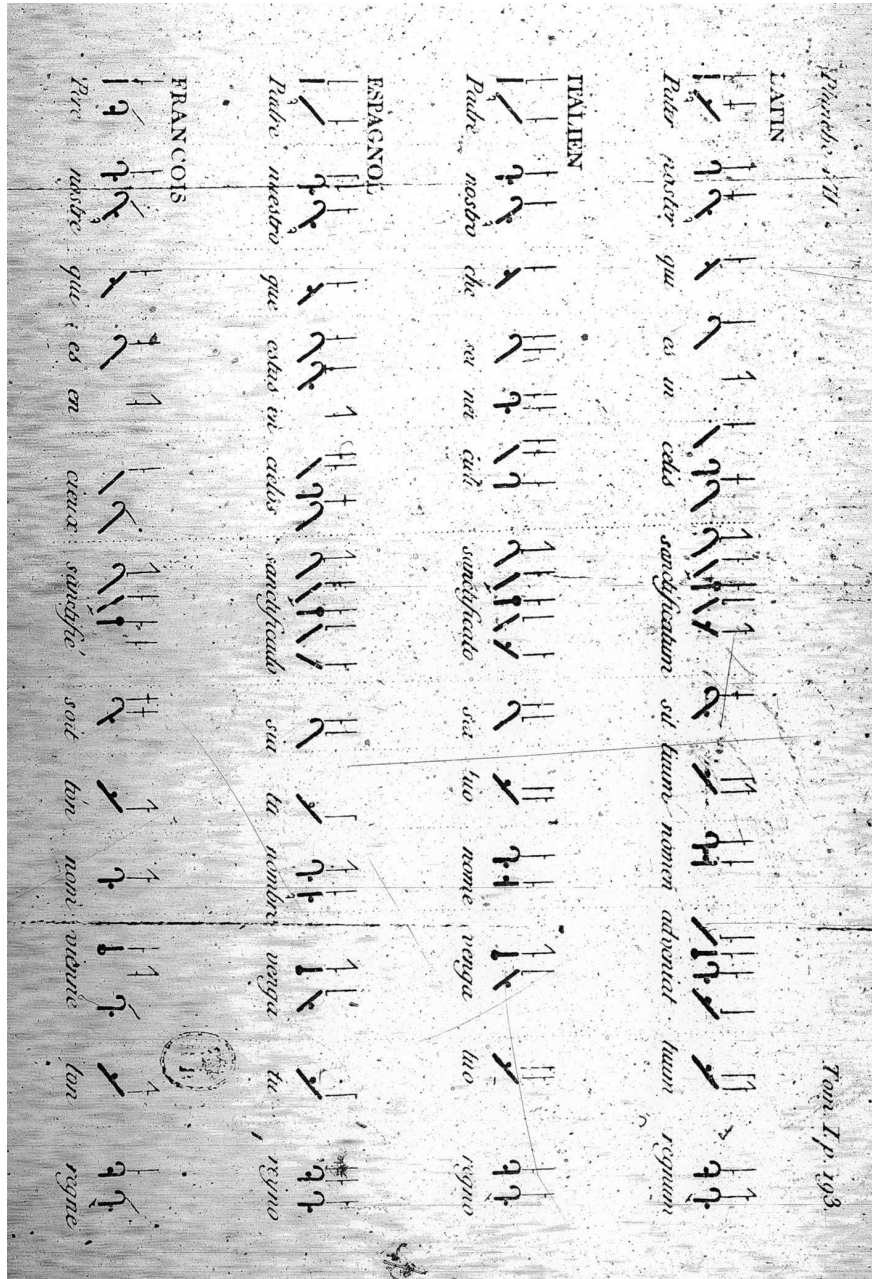 Planche VII Tom. I. p. 193.
LATIN
Pater noster qui es in celis sanctificatum sit tuum nomen adveniat tuum regnum
ITALIEN
Padre nostro che sei nei cieli sanctificato sia tuo nome venga tuo regno
ESPAGNOL
Padre nuestro que estas in cielos sanctificado sia tu nombre venga tu regno
FRANCOIS
Pere nostre qui es en cieux sanctifié soit ton nom vienne ton regne